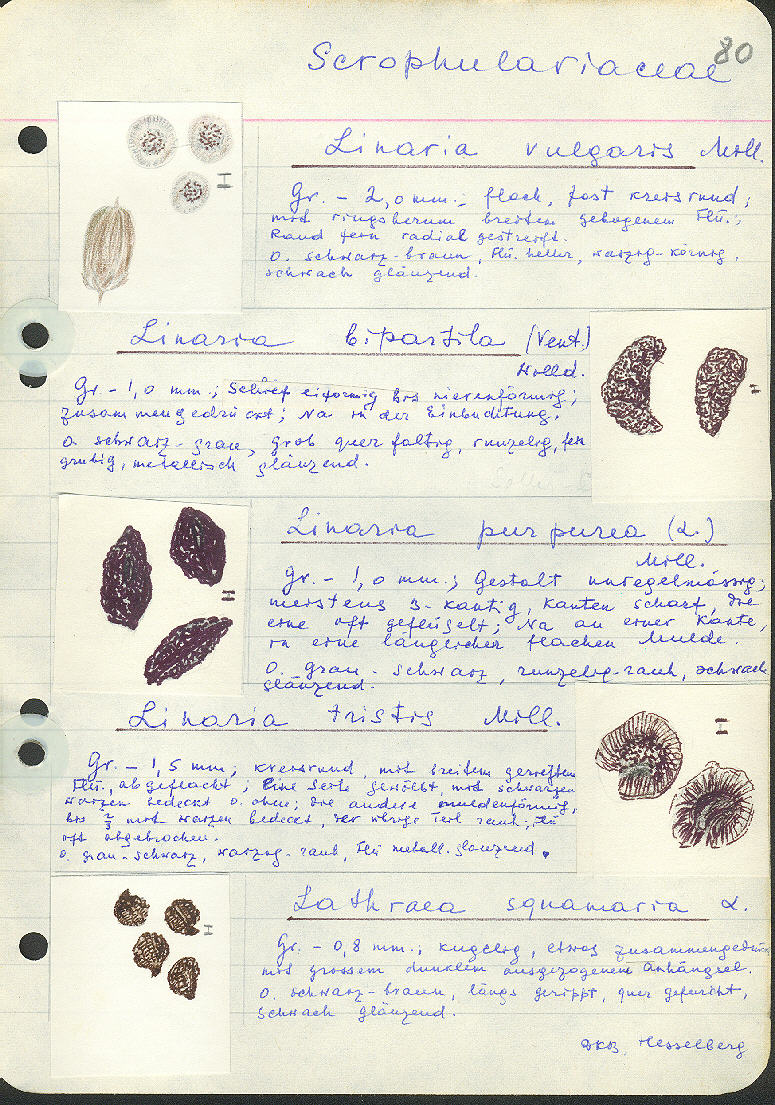 80
Scrophulariaceae
Linaria vulgaris Mill.
Gr. - 2,0 mm.; flach, fast kreisrund;
mit ringsherum breitem gebogenem Flü.;
Rand fein radial gestreift.
O. schwarz-braun, Flü. heller, warzig-körnig,
schwach glänzend.
Linaria bipartita (Vent.)
Willd.
Gr. - 1,0 mm.; Schief eiförmig bis nierenförmig;
zusammengedrückt; Na in der Einbuchtung.
O. schwarz-grau, grob quer faltig, runzelig, fein
grubig, metallisch glänzend.
Linaria purpurea (L.)
Mill.
Gr. - 1,0 mm.; Gestalt unregelmässig;
meistens 3-kantig, Kanten scharf, die
eine oft geflügelt; Na an einer Kante,
in eine länglicher flachen Mulde.
O. grau-schwarz, runzelig-rauh, schwach
glänzend.
Linaria tristis Mill.
Gr. - 1,5 mm; kreisrund, mit breitem gerieften
Flü., abgeflacht; Eine Seite gewölbt, mit schwarzen
Warzen bedeckt o. ohne; die andere muldenförmig,
bis 2/3 mit Warzen bedeckt, der übrige Teil rauh; Flü
oft abgebrochen.
O. grau-schwarz, warzig-rauh, Flü metall. glänzend.
Lathraea squamaria L.
Gr. - 0,8 mm.; kugelig, etwas zusammengedrückt
mit grossem dunklem ausgezogenem Anhängsel.
O. schwarz-braun, längs gerippt, quer gefurcht,
schwach glänzend.
Hesselberg